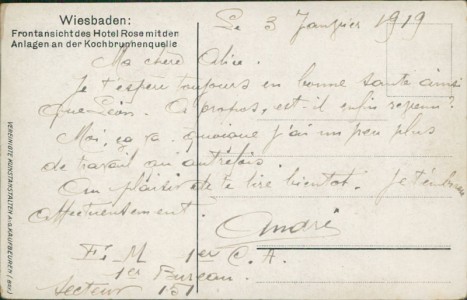 Wiesbaden:
Frontansicht des Hotel Rose mit den
Anlagen an der Kochbrunnenquelle
Le 3 Janvier 1919
Ma chère Alice.
Je t'espère toujours en bonne santé ainsi
que Léon. A propos, est-il enfin revenu?
Moi, ça va quoique j'ai un peu plus
de travail qu'autrefois.
Au plaisir de te lire bientôt. Je t'embrasse
affectueusement.
André
E. M 1er C. A.
1er Bureau.
Secteur 151
VEREINIGTE KUNSTANSTALTEN A.-G. KAUFBEUREN (BAY.)